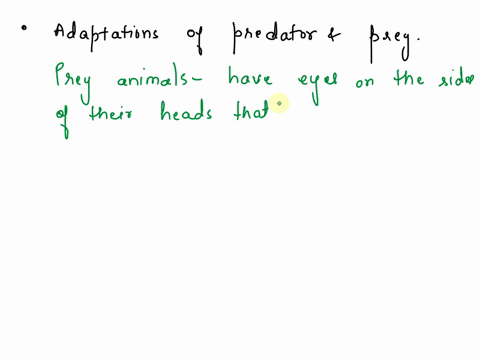 • Adaptations of predator & prey.
Prey animals- have eyes on the side
of their heads that